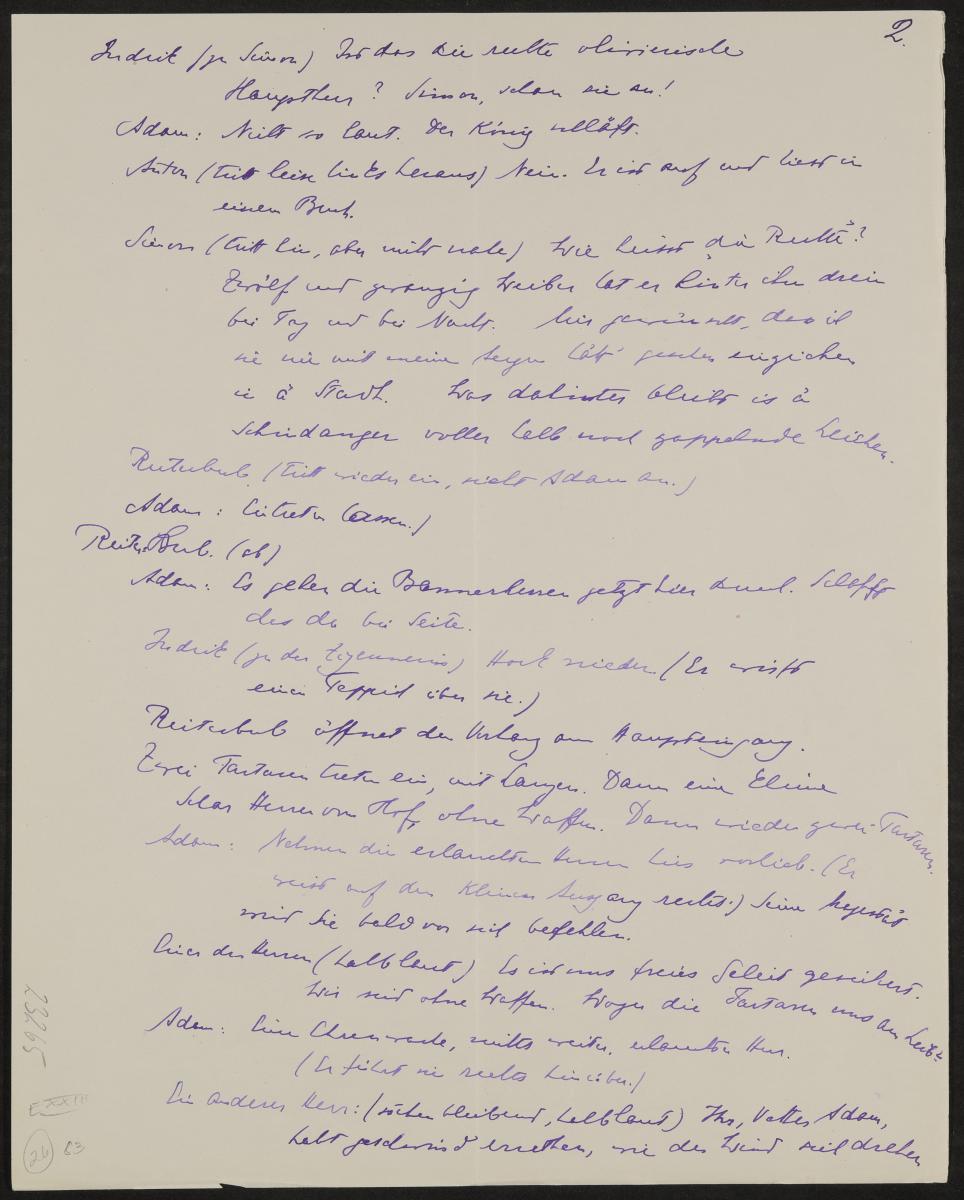 2.
Indrik (zu Simon) Ist das die rechte olivierische
Haupthur? Simon, schau sie an!
Adam: Nicht so laut. Der König schläft.
Anton (tritt leise links heraus) Nein. Er ist auf und liest in
einem Buch.
Simon (tritt hin, aber nicht nahe) Wie heisst „die Rechte"?
Zwölf und zwanzig Weiber hat er hinter ihm drein
bei Tag und bei Nacht. Mir gewünscht, dass i
sie nie mit meine Augen hätt' gesehen einziehen
in a Stadt. Was dahinter bleibt is a
Schindanger voller halb noch zappelnde Leichen.
Reiterbub (tritt wieder ein, sieht Adam an.)
Adam: Eintreten lassen.)
Reiterbub. (ab)
Adam: Es gehen die Bannerherren jetzt hier durch. Schafft
des da bei Seite.
Indrik (zu der Zigeunerin) Hock nieder. (Er wirft
einen Teppich über sie.)
Reiterbub öffnet den Vorhang am Haupteingang.
Zwei Tartaren treten ein, mit Lanzen. Dann eine kleine
Schar Herren vom Hof, ohne Waffen. Dann wieder zwei Tartaren.
Adam: Nehmen die erlauchten Herren hier vorlieb. (Er
weist auf den kleinen Ausgang rechts.) Seine Majestät
wird Sie bald vor sich befehlen.
Einer der Herren (halblaut) Es ist uns freies Geleit gesichert.
Wir sind ohne Waffen. Wozu die Tartaren uns am Leib?
Adam: Eine Ehrenwache, nichts weiter, erlauchter Herr.
(Er führt sie rechts hinüber.)
Ein anderer Herr: (stehen bleibend, halblaut) Ihr, Vetter Adam,
habt geschwind errathen, wie der Wind sich drehen
23265
E XXIII
26 83